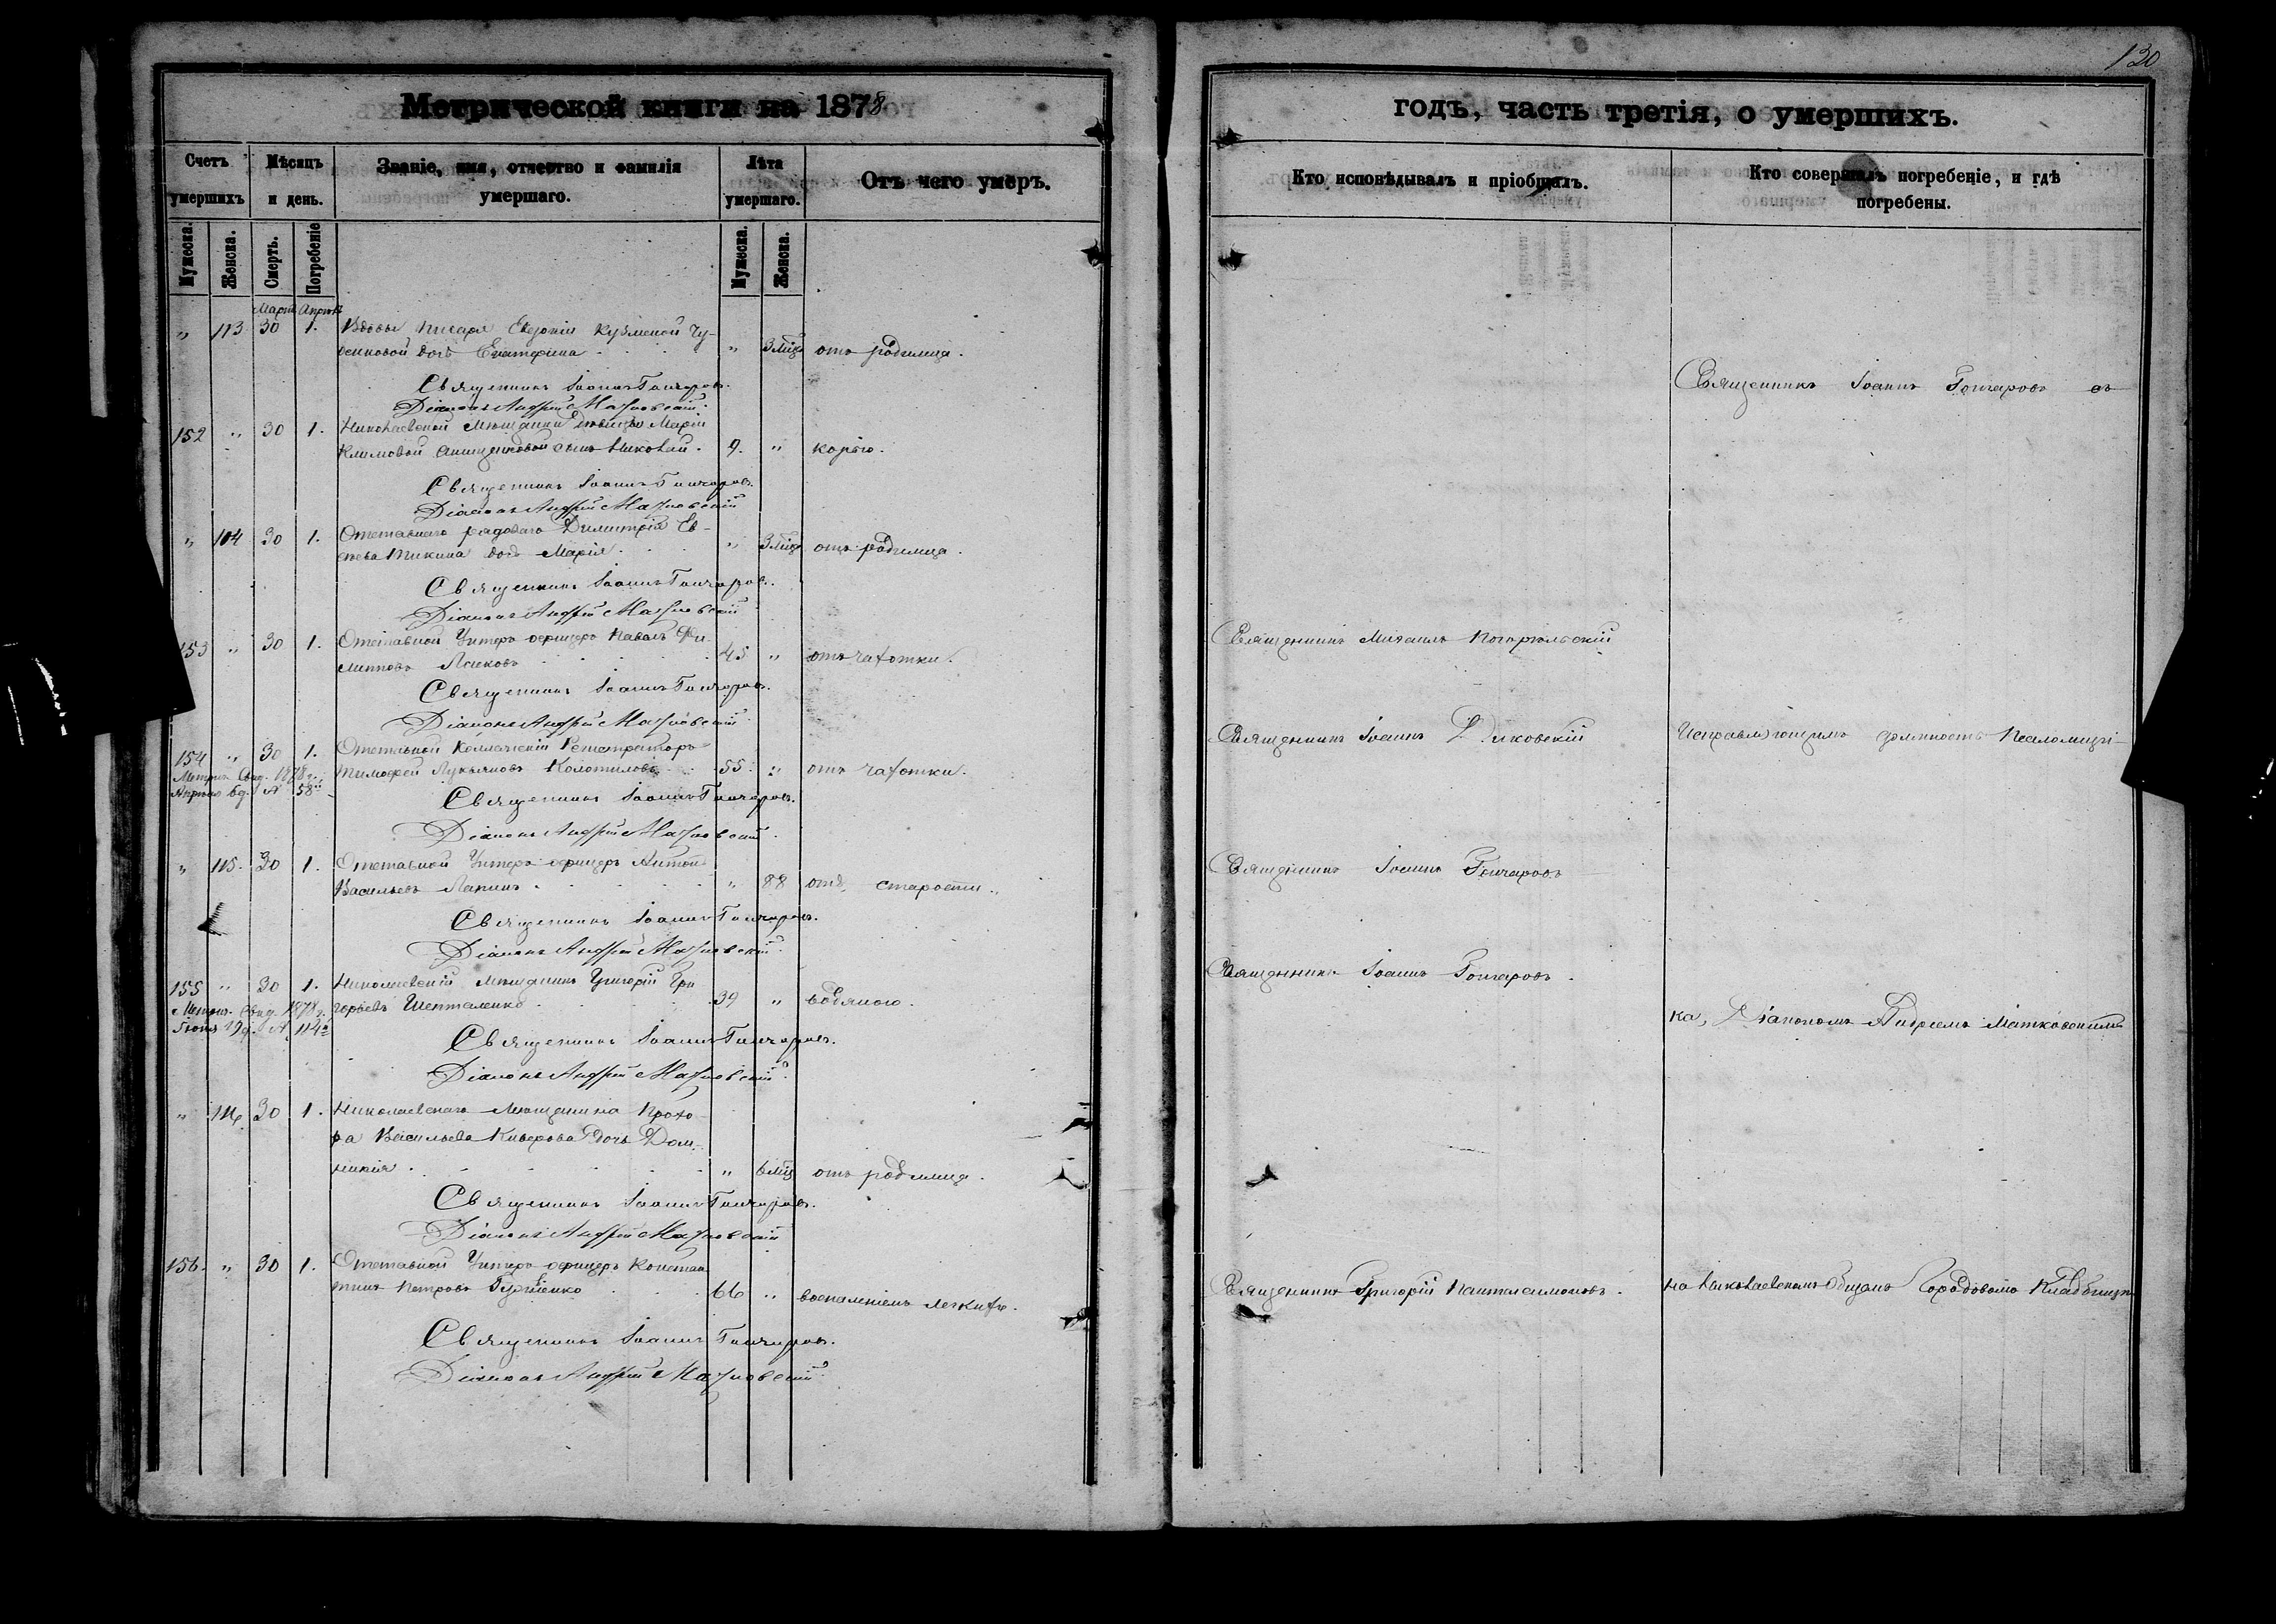 130
Метрической книги на 1878
годъ, часть третія, о умершихъ.
Счетъ умершихъ
Мѣсяцъ и день.
Званіе, имя, отчество и фамилія умершаго.
Лѣта умершаго.
Отъ чего умеръ.
Кто исповѣдывалъ и пріобщалъ.
Кто совершалъ погребеніе, и гдѣ погребены.
Мужеска. Женска. Смерть. Погребеніе Мужеска. Женска.
Мартъ Апрѣль
" 113 30 1. Вдовы писаря Кузминой Чу-
дочь Екатерина " 3 мѣс отъ родимца.
Священникъ Іоаннъ Гончаровъ.
Діаконъ Андрей Матковскій.
Священникъ Іоаннъ Гончаровъ съ
152 " 30 1. Николаевской мѣщанки дѣвицы Маріи
Климовой сынъ Николай. 9. " корью.
Священникъ Іоаннъ Гончаровъ.
Діаконъ Андрей Матковскій
" 114 30 1. Отставнаго рядоваго Димитрія Ев-
дочь Марія " 3 мѣс отъ родимца.
Священникъ Іоаннъ Гончаровъ.
Діаконъ Андрей Матковскій
153 " 30 1. Отставной Унтеръ офицеръ Павелъ Фи-
липповъ 45 " отъ чахотки.
Священникъ Михаилъ Погорѣльскій
Священникъ Іоаннъ Гончаровъ.
Діаконъ Андрей Матковскій
154 " 30 1. Отставной Коллежскій Регистраторъ
Тимофей Лукьяновъ Колотиловъ 55. " отъ чахотки.
Метрич. Свид. 1878 г.
Апрѣля 6 д. № 58
Священникъ Іоаннъ Диковскій
Исправляющимъ должность Псаломщи-
Священникъ Іоаннъ Гончаровъ.
Діаконъ Андрей Матковскій.
" 115. 30 1. Отставной Унтеръ-офицеръ Антонъ
Васильевъ Лапинъ " 88 отъ старости.
Священникъ Іоаннъ Гончаровъ
Священникъ Іоаннъ Гончаровъ.
Діаконъ Андрей Матковскій.
155 " 30 1. Николаевскій мѣщанинъ Григорій Гри-
горьевъ Шепталенко 39 " водяною.
Метрич. Свид. 1878 г.
Іюня 19 д. № 114
Священникъ Іоаннъ Гончаровъ.
ка, Діакономъ Андреемъ Матковскимъ
Священникъ Іоаннъ Гончаровъ.
Діаконъ Андрей Матковскій.
" 116. 30 1. Николаевскаго мѣщанина Прохо-
ра Васильева дочь Дом-
никія " 6 мѣс отъ родимца.
Священникъ Іоаннъ Гончаровъ.
Діаконъ Андрей Матковскій
156. " 30 1. Отставной Унтеръ-офицеръ Констан-
тинъ Петровъ 66 " воспаленіемъ легкихъ.
Священникъ Григорій Пантелеимоновъ.
на Николаевскомъ Общемъ Городовомъ Кладбищѣ
Священникъ Іоаннъ Гончаровъ.
Діаконъ Андрей Матковскій.